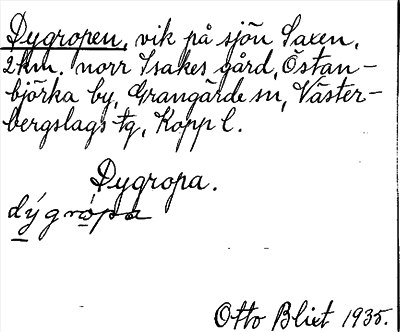 Dygropen, vik på sjön Saxen,
2 km. norr Isakes gård, Östan-
björka by, Grangärde sn, Väster-
bergslags tg, Kopp l.
Dygropa.
dýgrópa
Otto Bliet 1935.